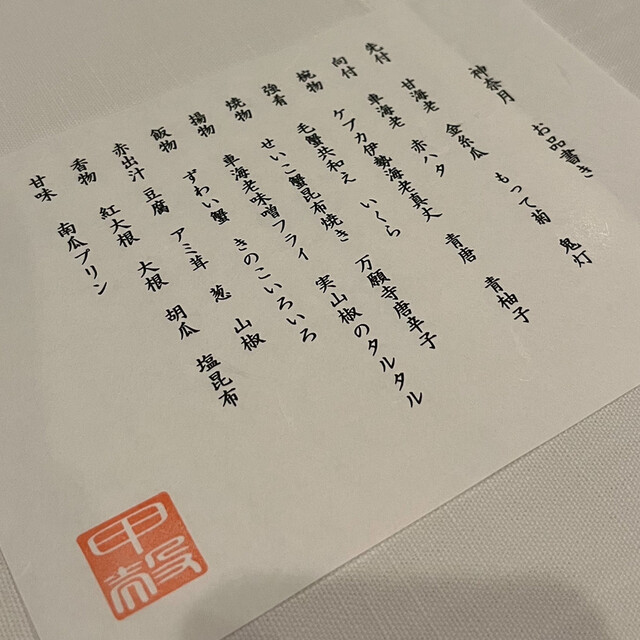 神奈月 お品書き
先付 甘海老 金糸瓜 もって菊 鬼灯
向付 車海老 赤ハタ
椀物 ケフカ伊勢海老真丈 青唐 青柚子
強肴 毛蟹共和え いくら
焼物 せいこ蟹昆布焼き 万願寺唐辛子
揚物 車海老味噌フライ 実山椒のタルタル
飯物 ずわい蟹 きのこいろいろ
赤出汁 豆腐 アミ茸 葱 山椒
香物 紅大根 大根 胡瓜 塩昆布
甘味 南瓜プリン
甲殻